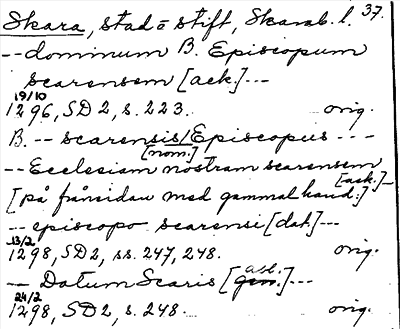 Skara, stad ō stift, Skarab. l. 37.
-- dominum B. Episcopum
scarensem [ack.] ---
19/10
1296, SD 2, s. 223. orig.
B. -- scarensis/Episcopus ----
[nom.]
-- Ecclesiam nostram scarensem
[ack.] --
[på frånsidan med gammal hand:]
-- episcopo scarensi [dat.] ---
13/2
1298, SD 2, ss. 247, 248. orig.
-- Datum Scaris [gen.] ---
abl.
24/2
1298, SD 2, s. 248. orig.